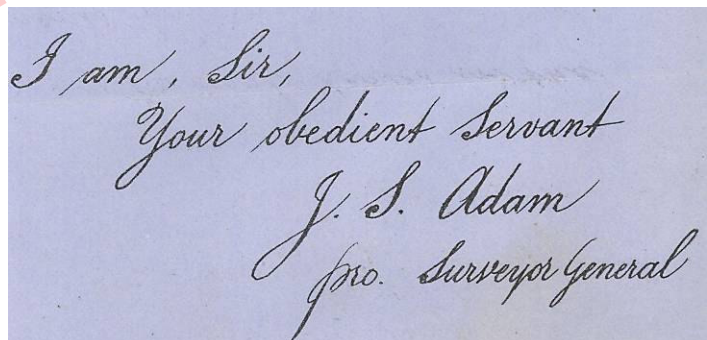 I am, Sir,
Your obedient Servant
J. S. Adam
pro. Surveyor General